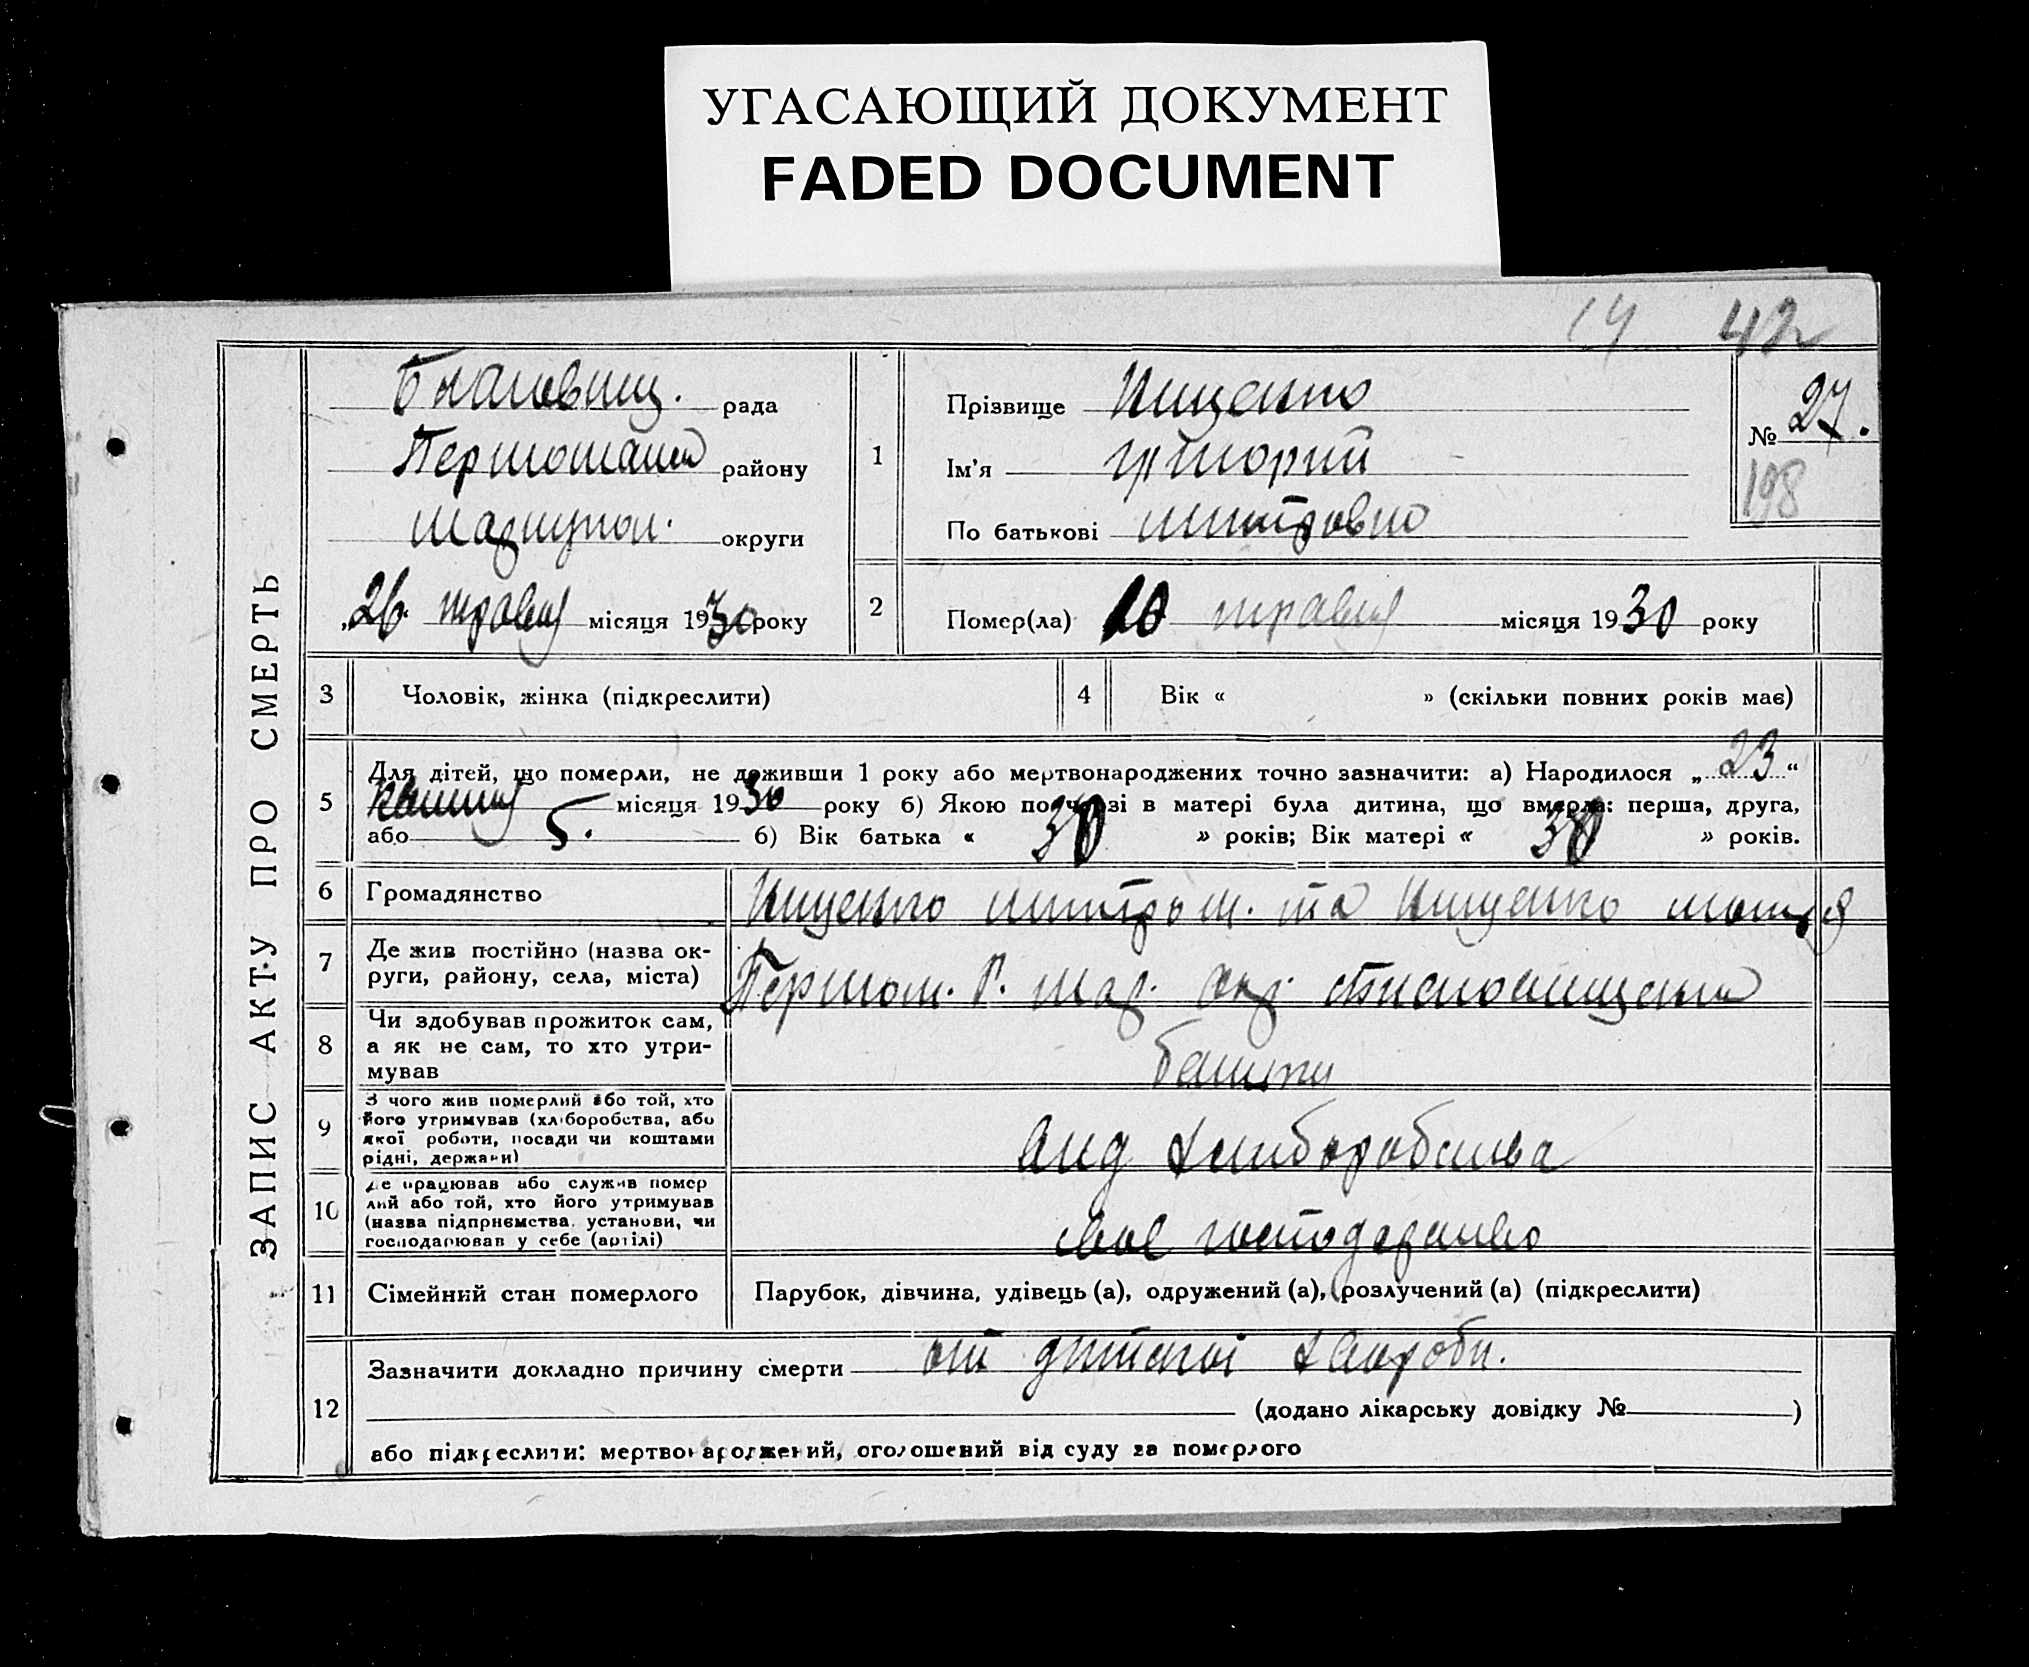 УГАСАЮЩИЙ ДОКУМЕНТ
FADED DOCUMENT
14 42
ЗАПИС АКТУ ПРО СМЕРТЬ
рада
району
округи
26 травня місяця 1930 року
1
Прізвище Нищенко
Ім'я Григорий
По батькові
№ 27.
198
2
Помер(ла) 20 травня місяця 1930 року
3
Чоловік, жінка (підкреслити)
4
Вік « » (скільки повних років має)
5
Для дітей, що померли, не доживши 1 року або мертвонароджених точно зазначити: а) Народилося „23“
місяця 1930 року б) Якою по черзі в матері була дитина, що вмерла: перша, друга,
або 5. б) Вік батька « 30 » років; Вік матері « 30 » років.
6
Громадянство
Нищенко та Нищенко
7
Де жив постійно (назва округи, району, села, міста)
Першом. Р. Мар. Окр.
8
Чи здобував прожиток сам,
а як не сам, то хто утри-
мував
батьки
9
З чого жив померлий або той, хто
його утримував (хліборобства, або
якої роботи, посади чи коштами
рідні, держави)
від хліборобства
10
Де працював або служив помер
лий або той, хто його утримував
(назва підприємства, установи, чи
господарював у себе (артілі)
своє господарство
11
Сімейний стан померлого
Парубок, дівчина, удівець (а), одружений (а), розлучений (а) (підкреслити)
12
Зазначити докладно причину смерти від дитячої хвороби.
(додано лікарську довідку № )
або підкреслити: мертвонароджений, оголошений від суду за померлого